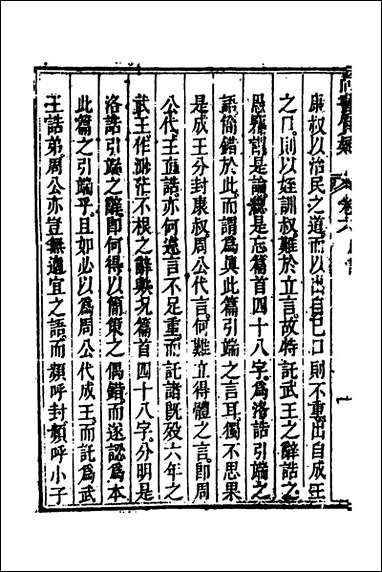 卷六
康叔以治民之道而以出自己口則不重出自成王
之口則以姪訓叔難於立言故特託武王之辭誥之
愚竊謂是論總是忘篇首四十八字爲洛誥引端之
語簡錯於此而謂爲眞此篇引端之言耳獨不思果
是成王分封康叔周公代言何難立得體之言卽周
公代王面誥亦何遽言不足重而託諸旣歿六年之
武王作渺茫不根之辭歟况篇首四十八字分明是
洛誥引端之辭卽何得以簡策之偶錯而遂認爲本
此篇之引端乎且如必以爲周公代成王而託爲武
王誥弟周公亦豈無適宜之語而頻呼封頻呼小子